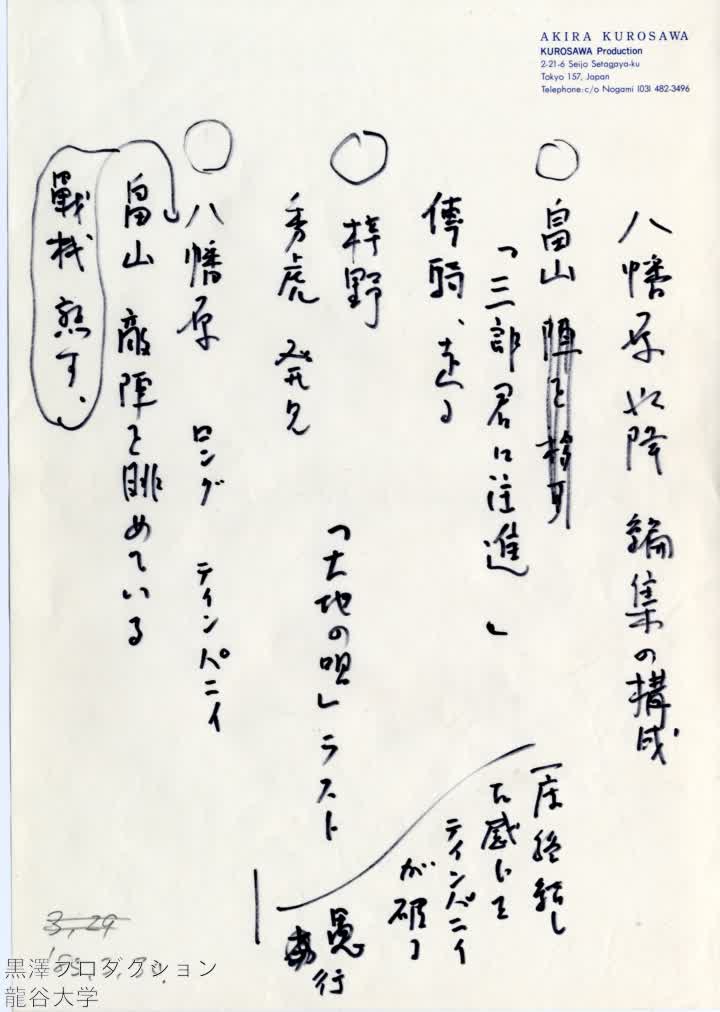 AKIRA KUROSAWA
KUROSAWA Production
2-21-6 Seijo Setagaya-ku
Tokyo 157, Japan
Telephone: c/o Nogami (03) 482-3496
八幡原以降 編集の構成
○ 畠山 陣を移す
「三郎君に注進」
伝騎、走る
○ 梓野
秀虎 発見
「大地の唄」ラスト
一応終結し
た感じを
ティンパニイ
が破る
愚行
○ 八幡原 ロング ティンパニイ
畠山 敵陣を眺めている
戦機熟す、
3,29
黒澤プロダクション
龍谷大学